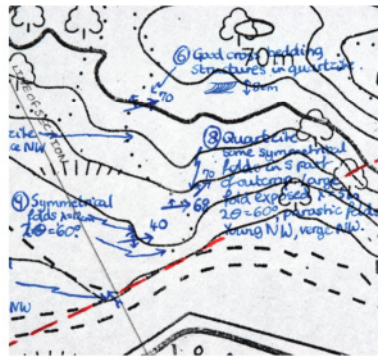 70m
⑥ Good cross bedding
structures in quartzite
8cm
70
LINE OF SECTION
NW
⑧ Quartzite
some symmetrical
folds in S part
of outcrop, large
fold exposed
2θ=60°, parasitic folds
Young NW, verge NW.
70
68
④ Symmetrical
folds
2θ=60°
40
NW